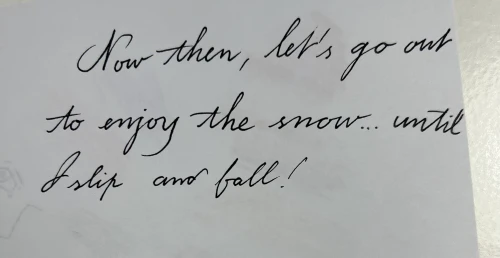 Now then, let's go out
to enjoy the snow... until
I slip and fall!